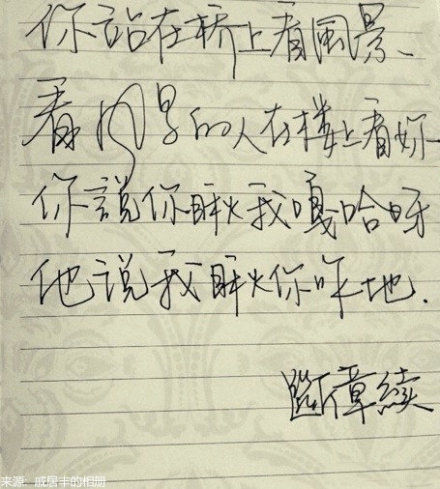 你站在桥上看風景、
看风景的人在楼上看妳
你説你瞅我嘎哈呀
他说我瞅你咋地.
斷章續
来源: 威居丰的相册